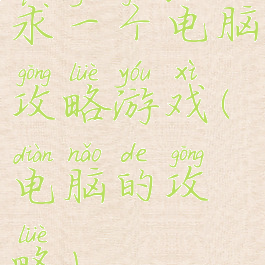 求一个电脑
gōng lüè yóu xì
攻略游戏(
diàn nǎo de gōng
电脑的攻
lüè
略)